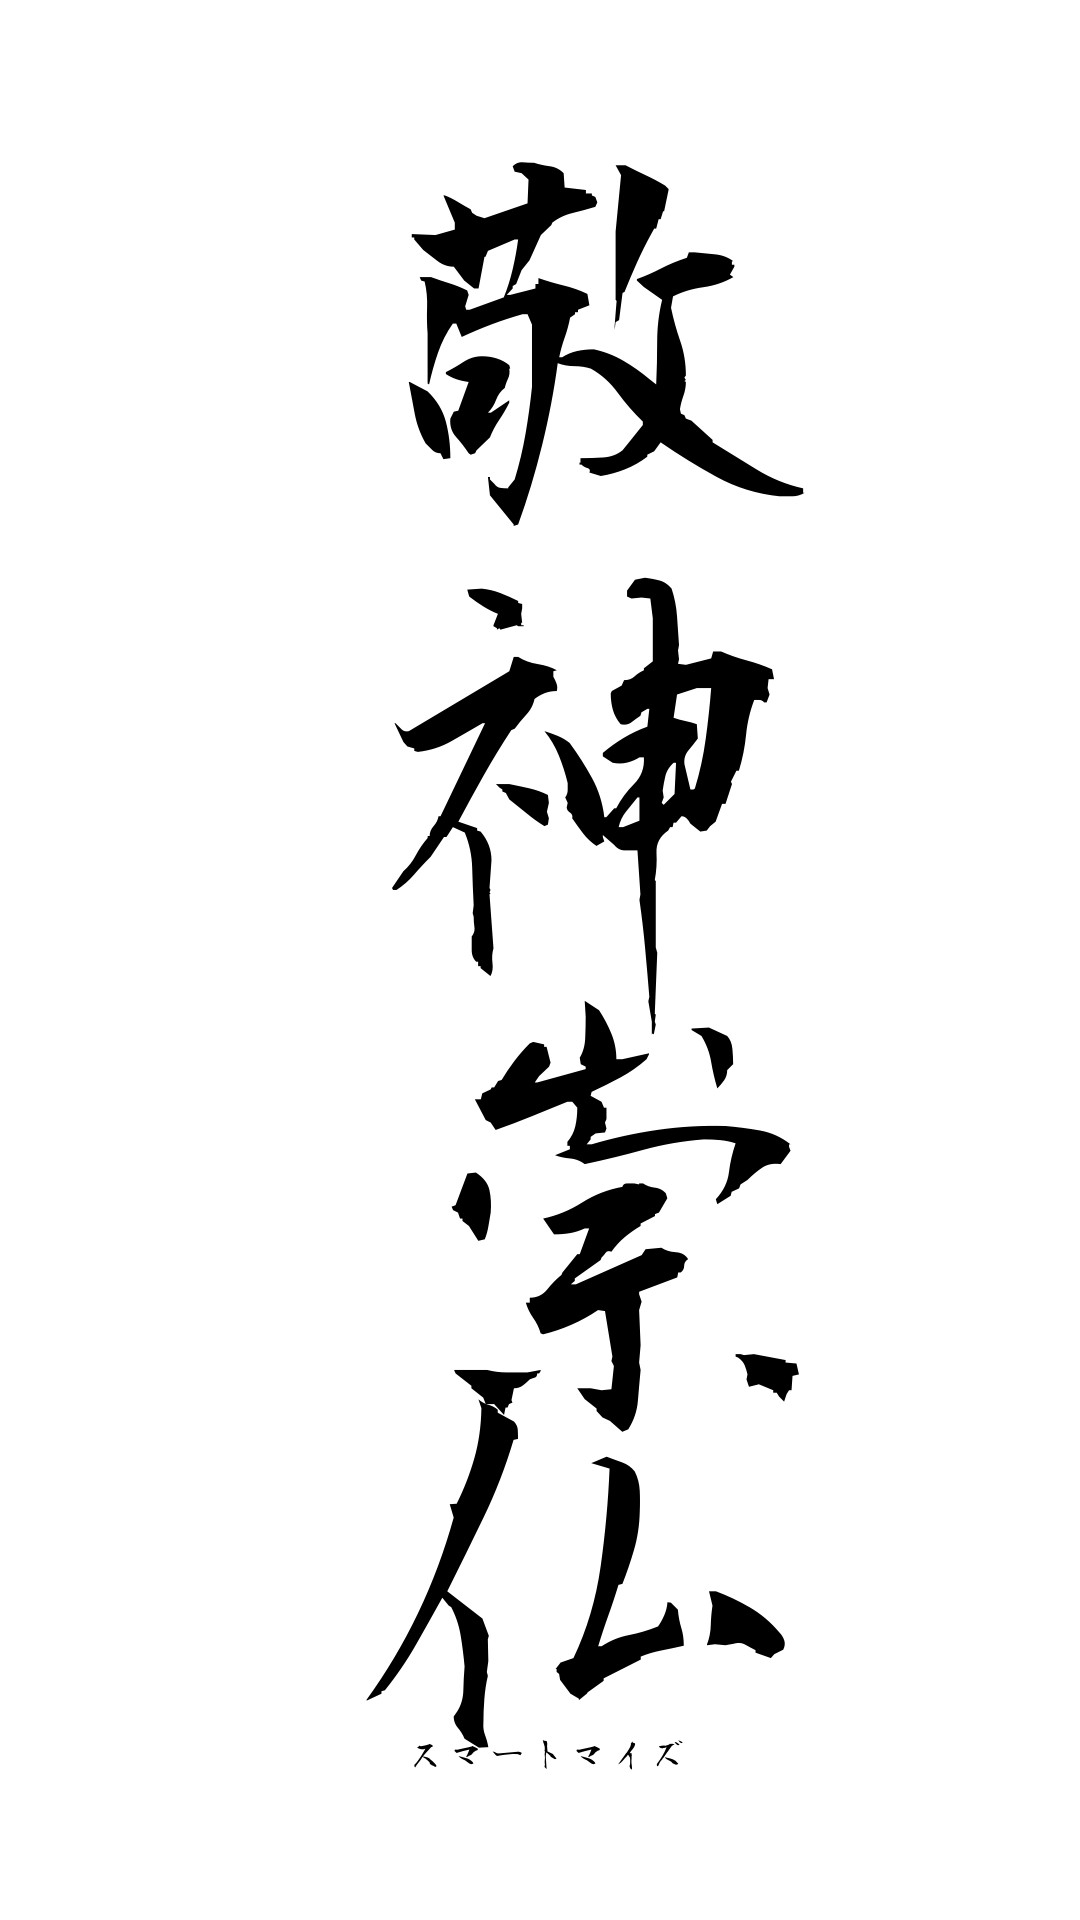 敬神崇仏
スマートマイズ